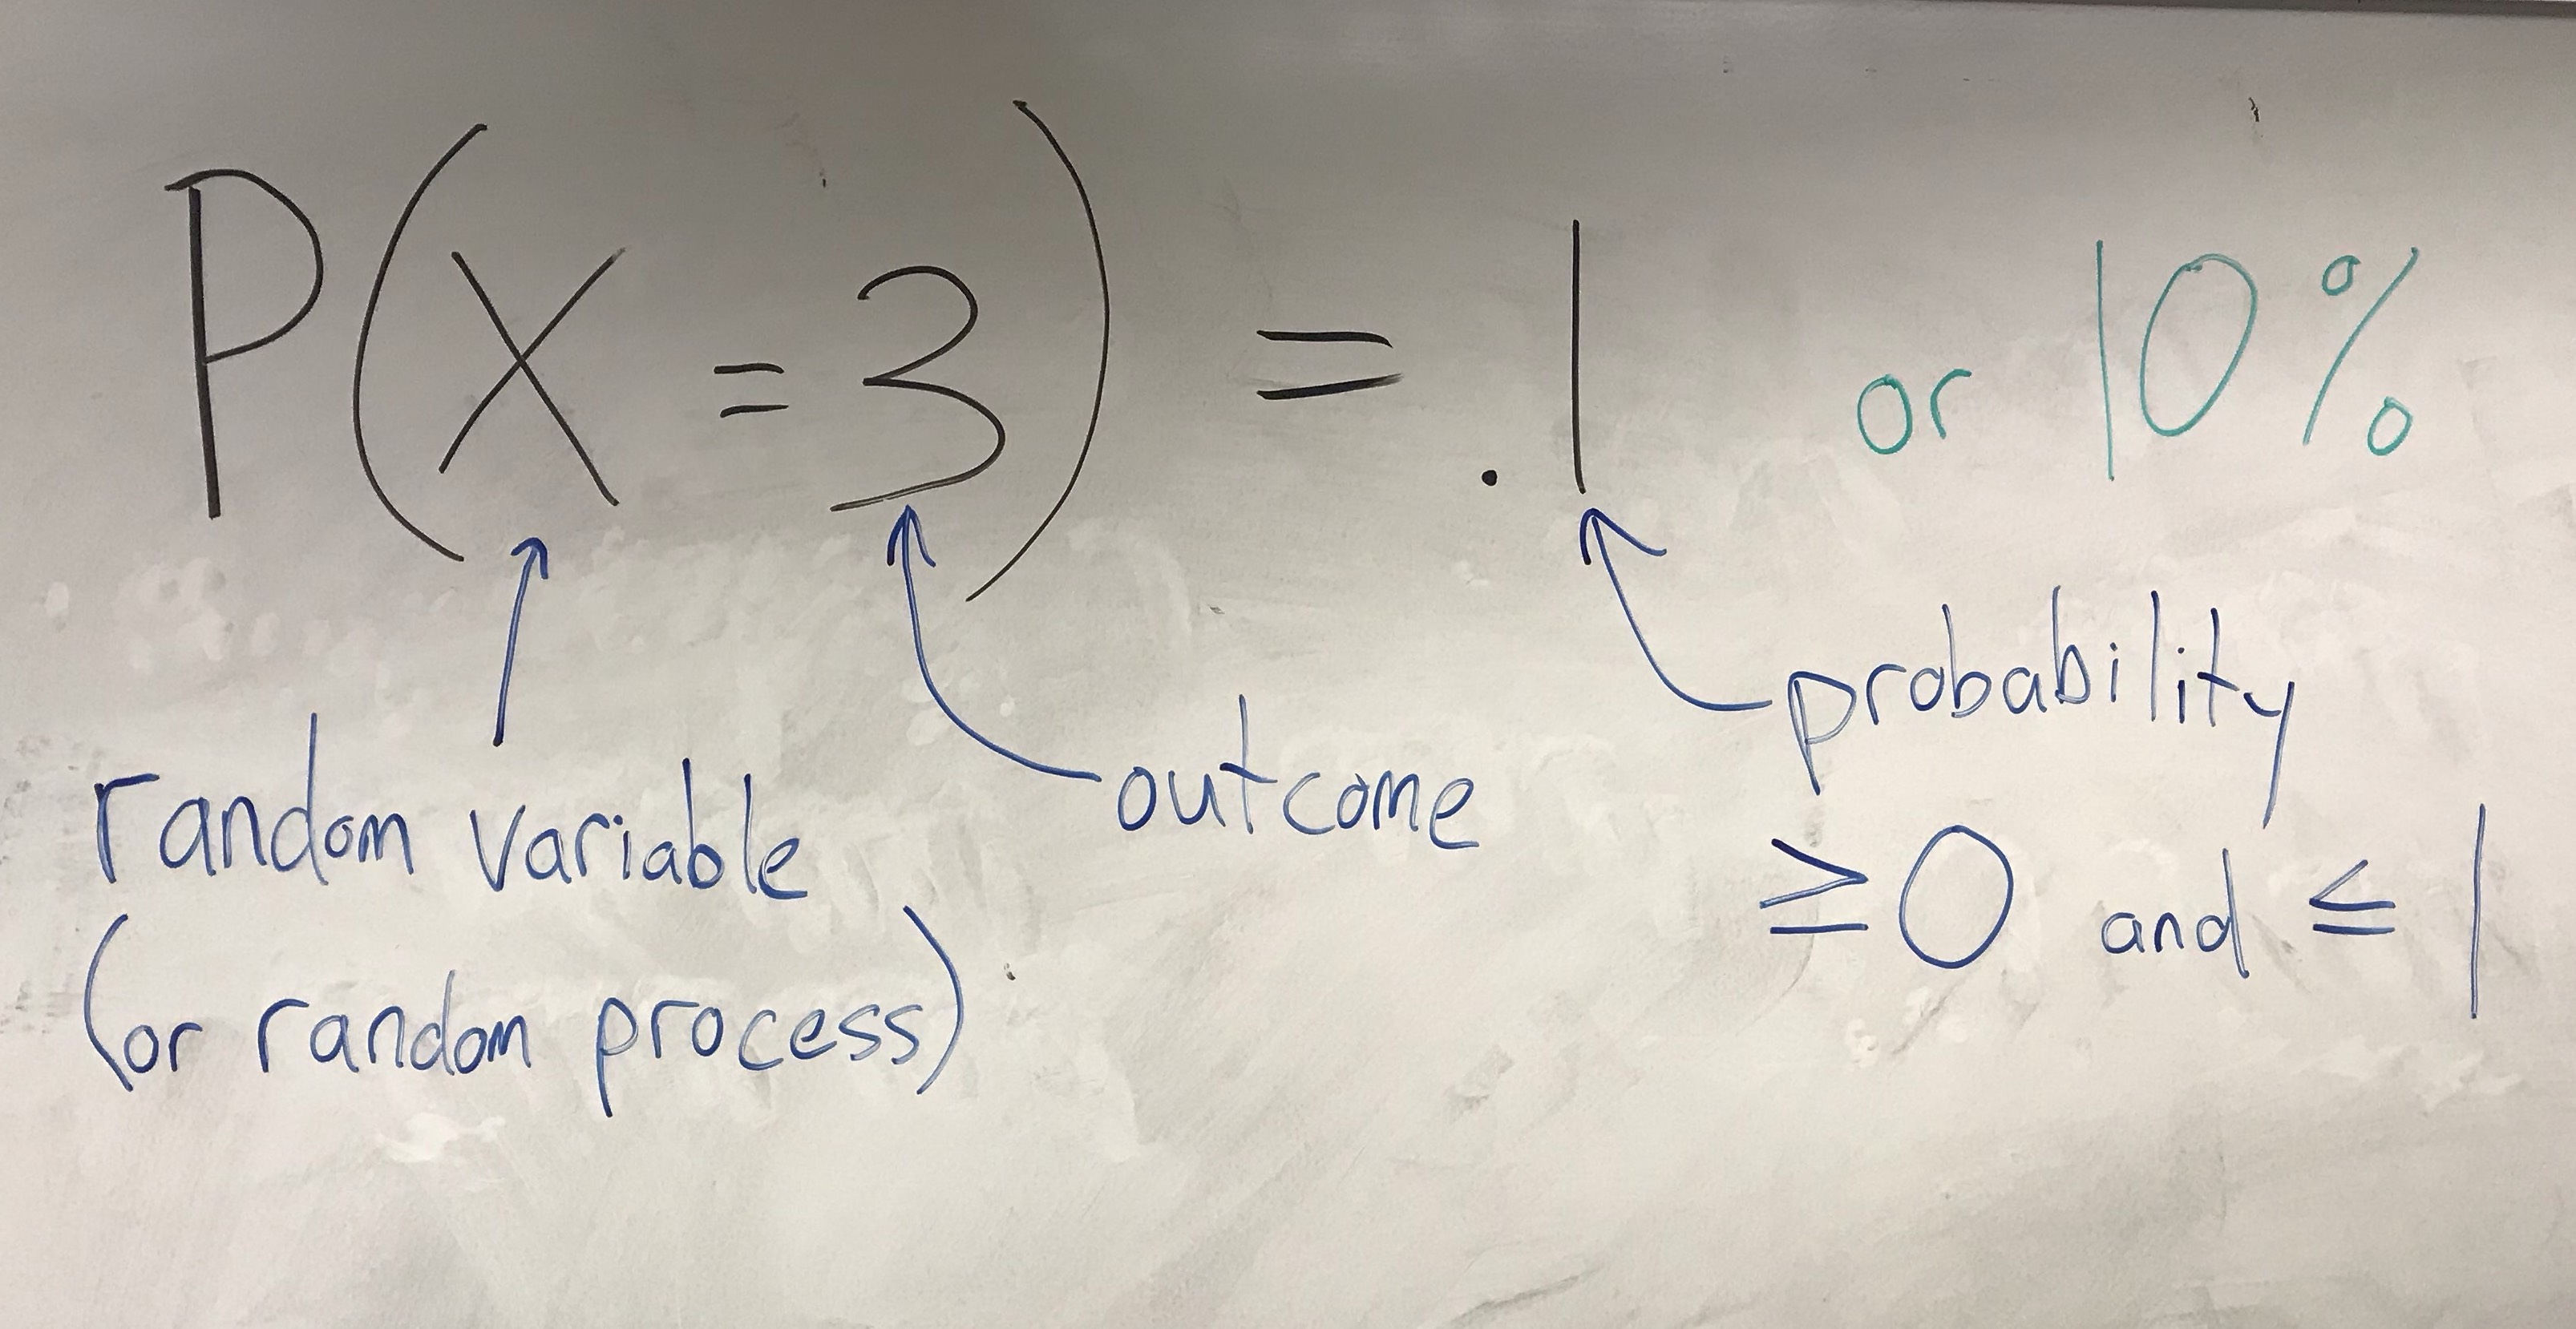 P(X = 3) = .1 or 10%
random variable
(or random process)
outcome
probability
≥0 and ≤ 1